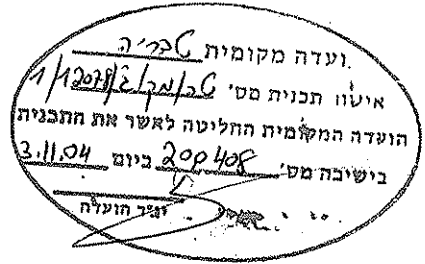 ועדה מקומית טבריה
אישור תכנית מס' טב/מק/ג/12078/1
הועדה המקומית החליטה לאשר את התכנית
בישיבה מס' 200408 ביום 3.11.04
יו"ר הועדה